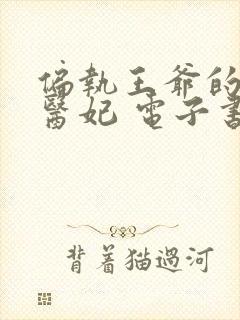 偏執王爺的
醫妃 電子書
背着猫過河